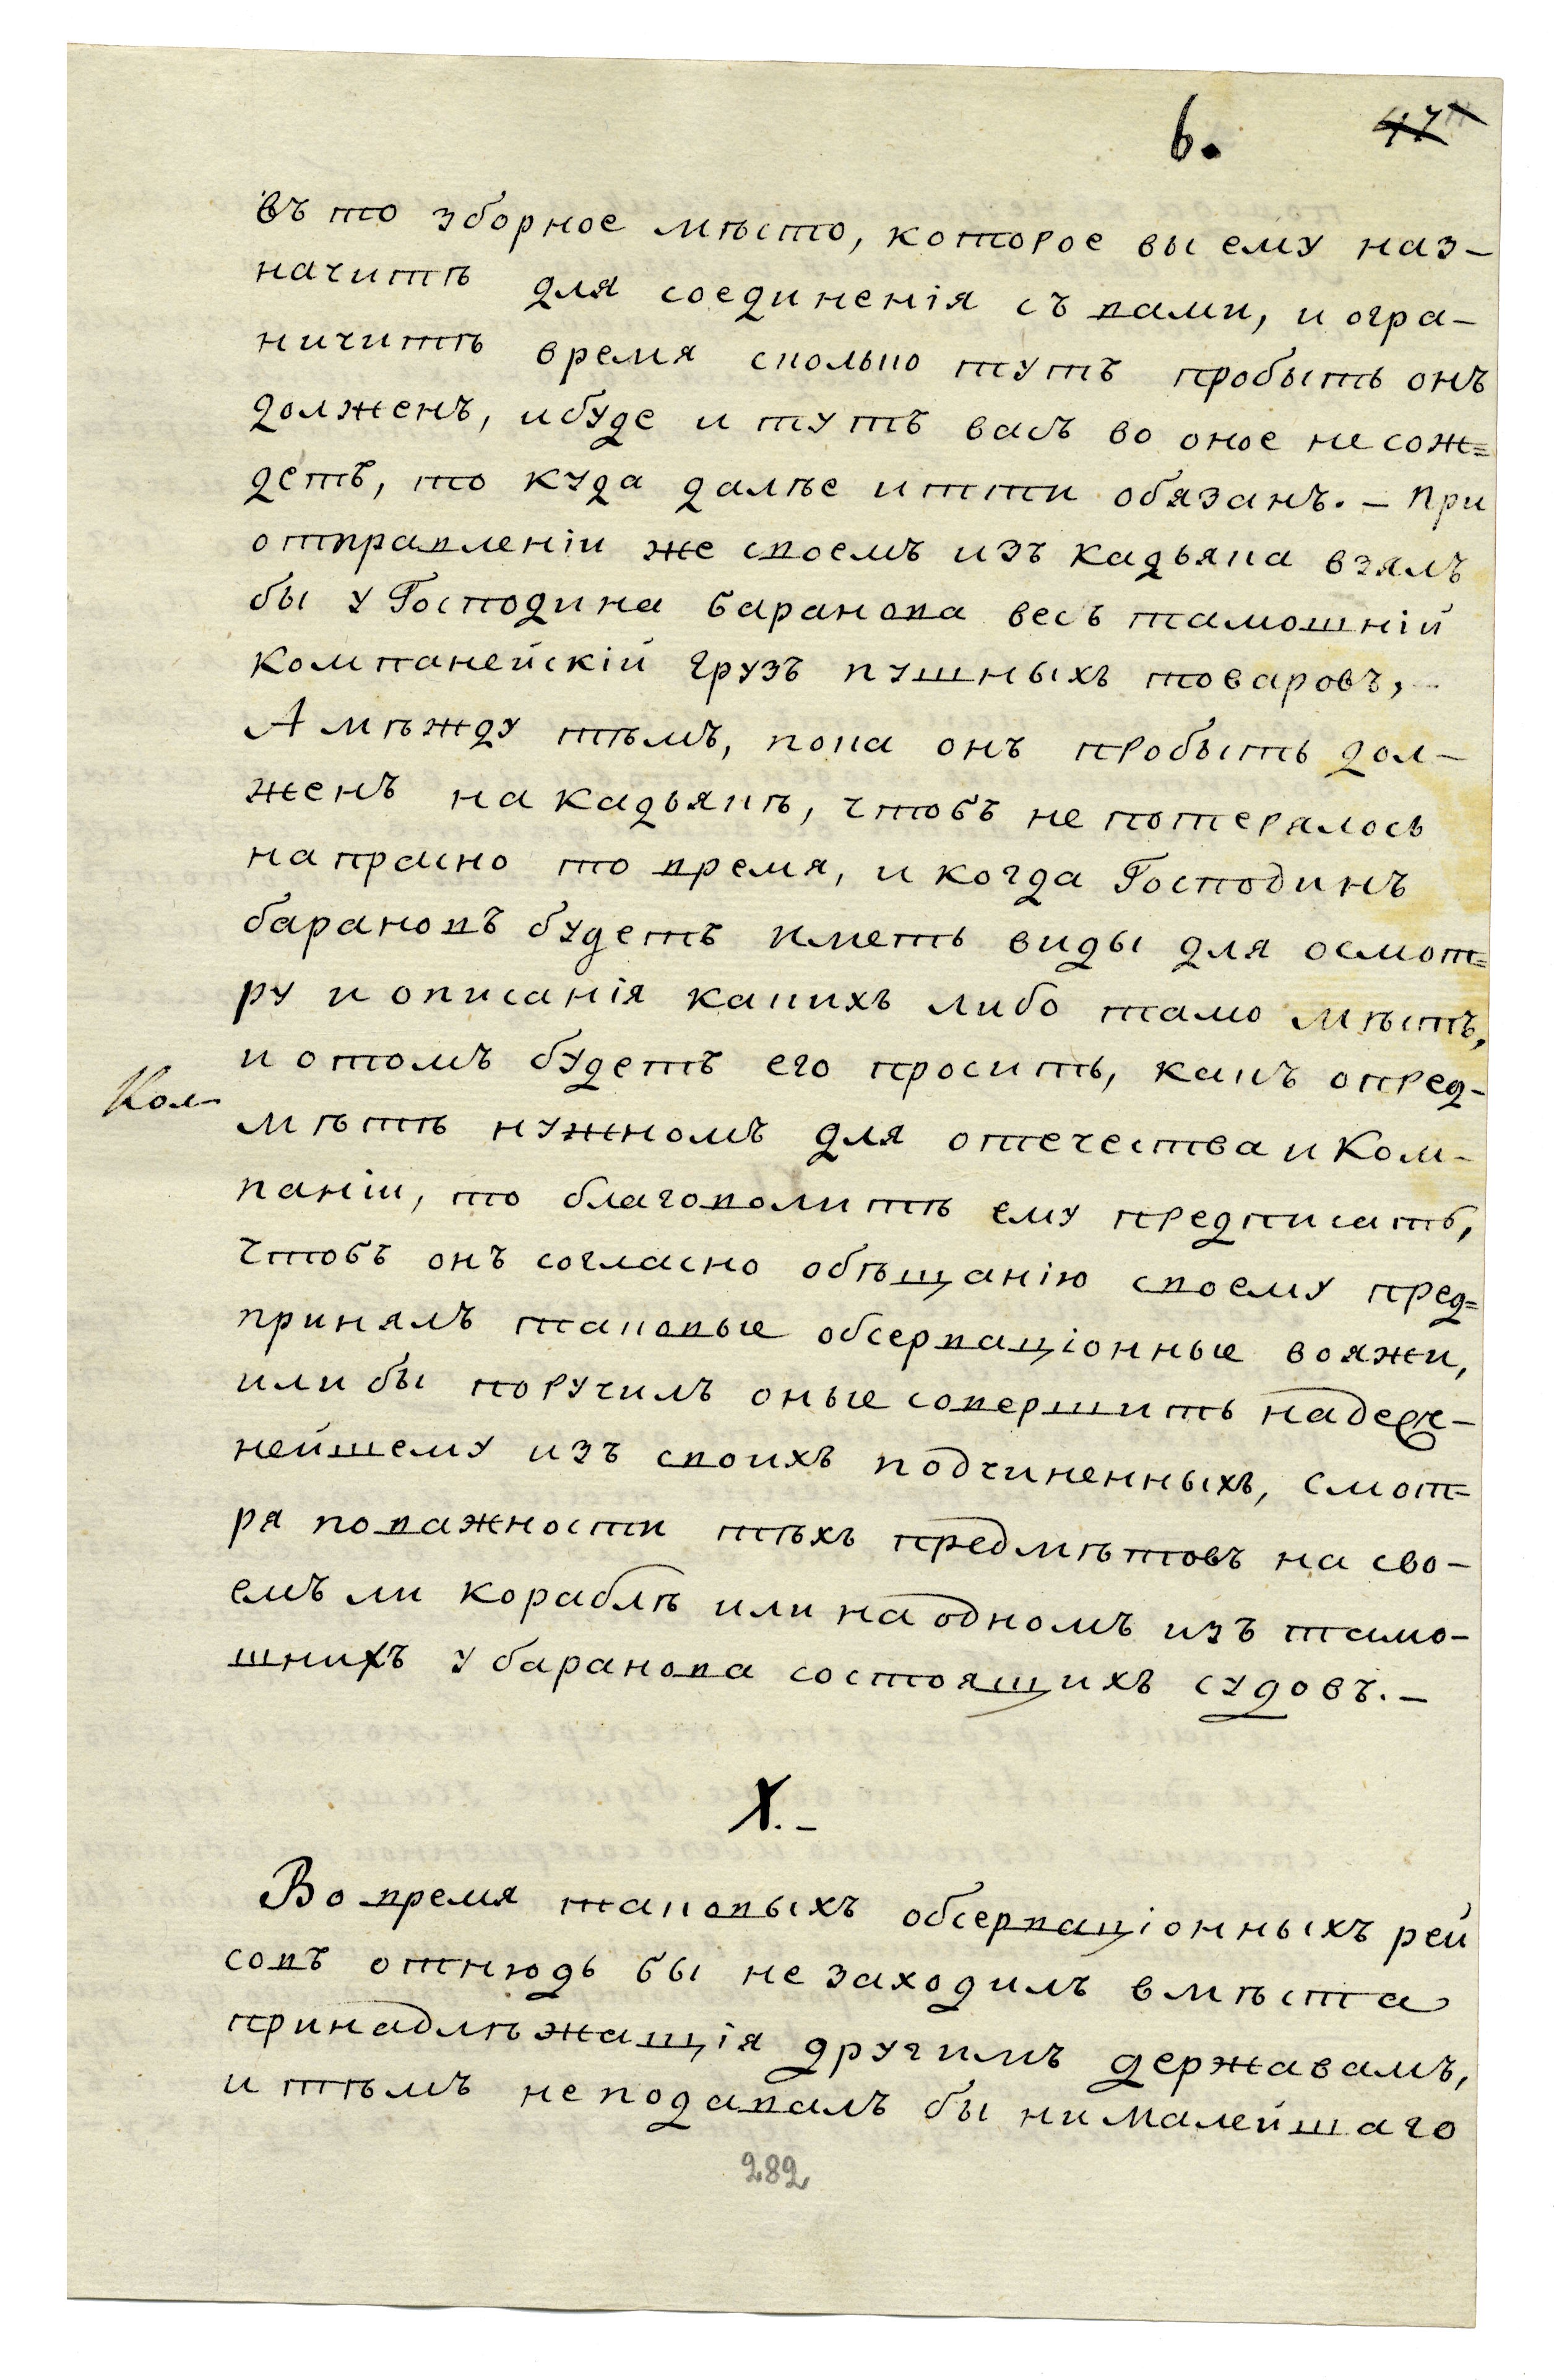 6. 47
въ то зборное мѣсто, которое вы ему наз-
начитѣ для соединенія съ вами, и огра-
ничитѣ время сколько тутъ пробыть онъ
долженъ, и буде и тутъ васъ во оное не сож=
детъ, то куда далѣе итти обязанъ. – При
отправленіи же своемъ изъ Кадьяка взялъ
бы у Господина Баранова весь тамошній
Компанейскій грузъ пушныхъ товаровъ, –
А мѣжду тѣмъ, пока онъ пробыть дол-
женъ на Кадьякѣ, чтобъ не потерялось
напрасно то время, и когда Господинъ
Барановъ будетъ иметь виды для осмот=
ру и описанія какихъ либо тамо мѣстъ,
и о томъ будетъ его просить, какъ о пред-
Ком-
мѣтѣ нужномъ для отечества и Ком-
паніи, то благоволитѣ ему предписать,
чтобъ онъ согласно обѣщанію своему пред=
принялъ таковые обсерваціонные вояжи,
или бы поручилъ оные совершить надеж-
нейшему изъ своихъ подчиненныхъ, смот=
ря по важности тѣхъ предмѣтовъ на сво-
емъ ли кораблѣ или на одномъ изъ тамо-
шнихъ у Баранова состоящихъ судовъ. –
X. –
Во время таковыхъ обсерваціонныхъ рей
совъ отнюдь бы не заходилъ в мѣста
принадлѣжащія другимъ державамъ,
и тѣмъ не подавалъ бы ни малейшаго
282